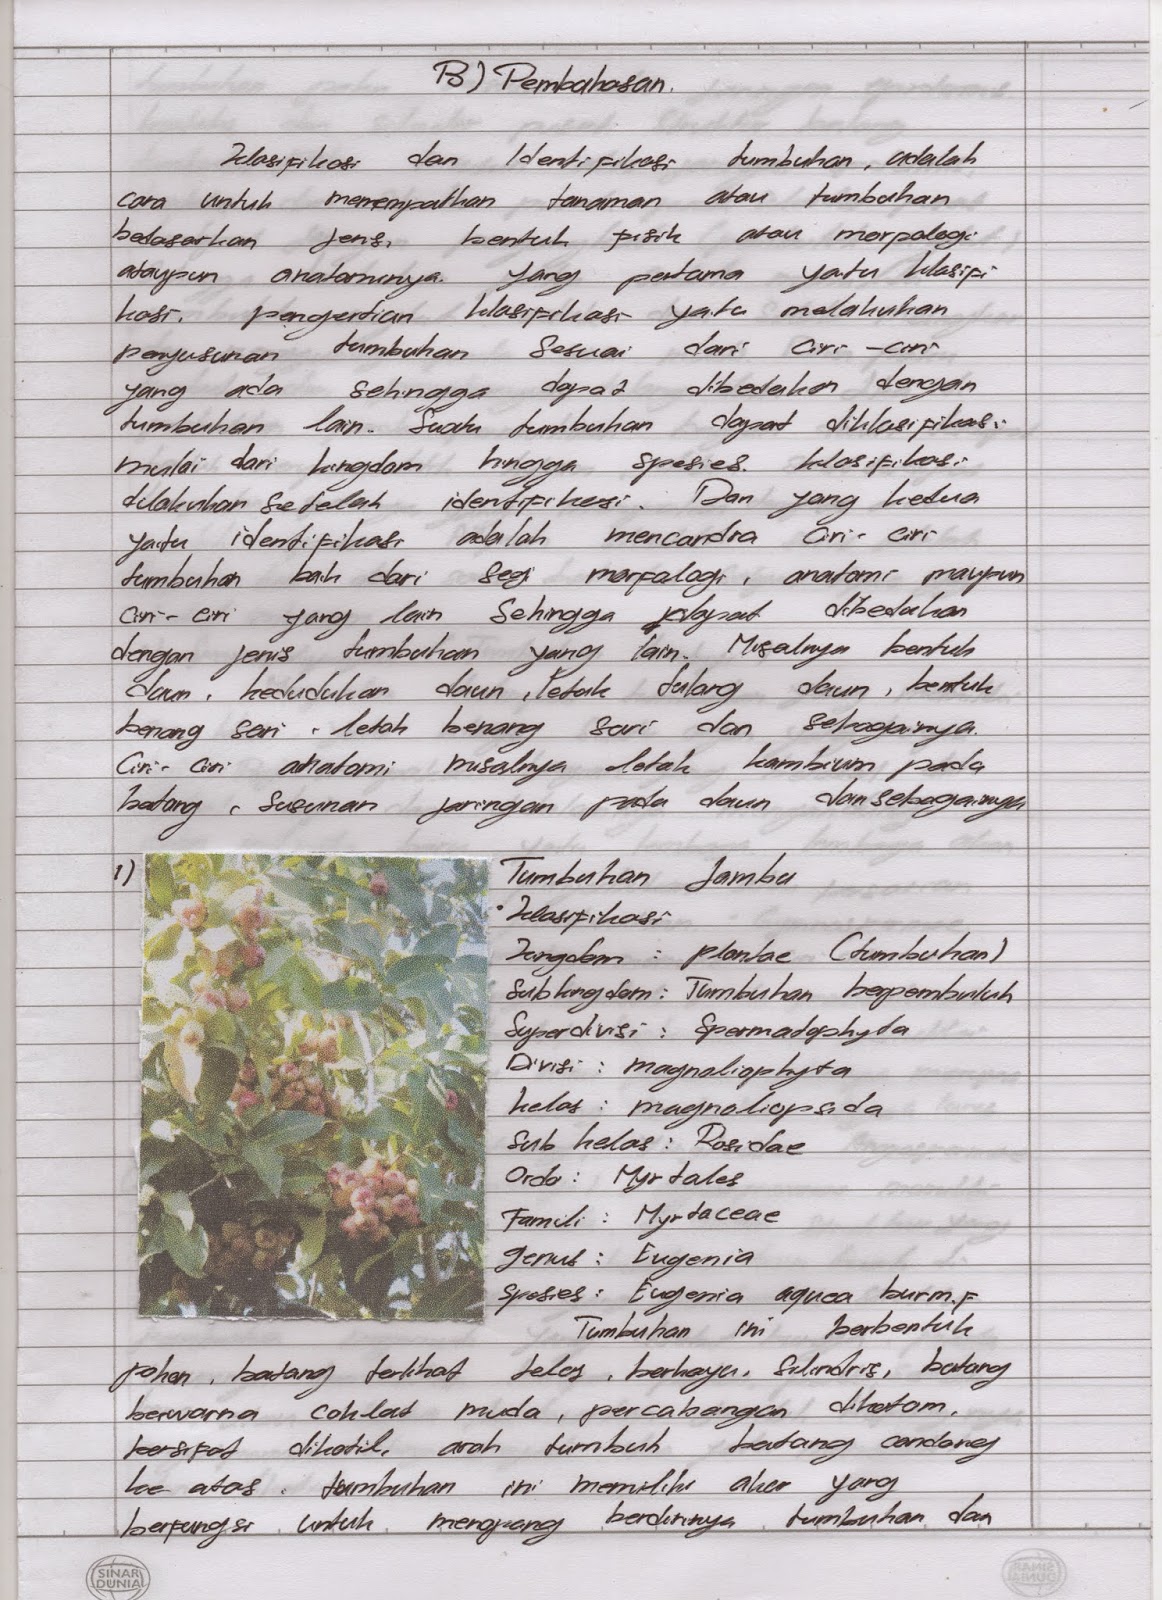 B) Pembahasan.
Klasifikasi dan Identifikasi tumbuhan, adalah
cara untuk menempatkan tanaman atau tumbuhan
bedasarkan jenis, bentuk fisik atau morfologi
ataupun anatominya. yang pertama yaitu klasifi
kasi. pengertian klasifikasi yaitu melakukan
penyusunan tumbuhan sesuai dari ciri-ciri
yang ada sehingga dapat dibedakan dengan
tumbuhan lain. Suatu tumbuhan dapat diklasifikasi
mulai dari kingdom hingga spesies. klasifikasi
dilakukan setelah identifikasi. Dan yang kedua
yaitu identifikasi adalah mencandra ciri-ciri
tumbuhan baik dari segi morfologi, anatomi maupun
ciri-ciri yang lain sehingga dapat dibedakan
dengan jenis tumbuhan yang lain. Misalnya bentuk
daun, kedudukan daun, letak tulang daun, bentuk
benang sari, letak benang sari dan sebagainya.
Ciri-ciri anatomi misalnya letak kambium pada
batang, susunan jaringan pada daun dan sebagainya
1) Tumbuhan Jambu
• Klasifikasi
Kingdom : plantae (tumbuhan)
Subkingdom : Tumbuhan berpembuluh
Superdivisi : Spermatophyta
Divisi : magnoliophyta
kelas : magnoliopsida
Sub kelas : Rosidae
Ordo : Myrtales
Famili : Myrtaceae
genus : Eugenia
spesies : Eugenia aquea burm.F
Tumbuhan ini berbentuk
pohon, batang terlihat jelas, berkayu, silindris, batang
berwarna coklat muda, percabangan dikotom,
bersifat dikotil, arah tumbuh batang condong
ke atas. tumbuhan ini memiliki akar yang
berfungsi untuk menopang berdirinya tumbuhan dan
SINAR
DUNIA